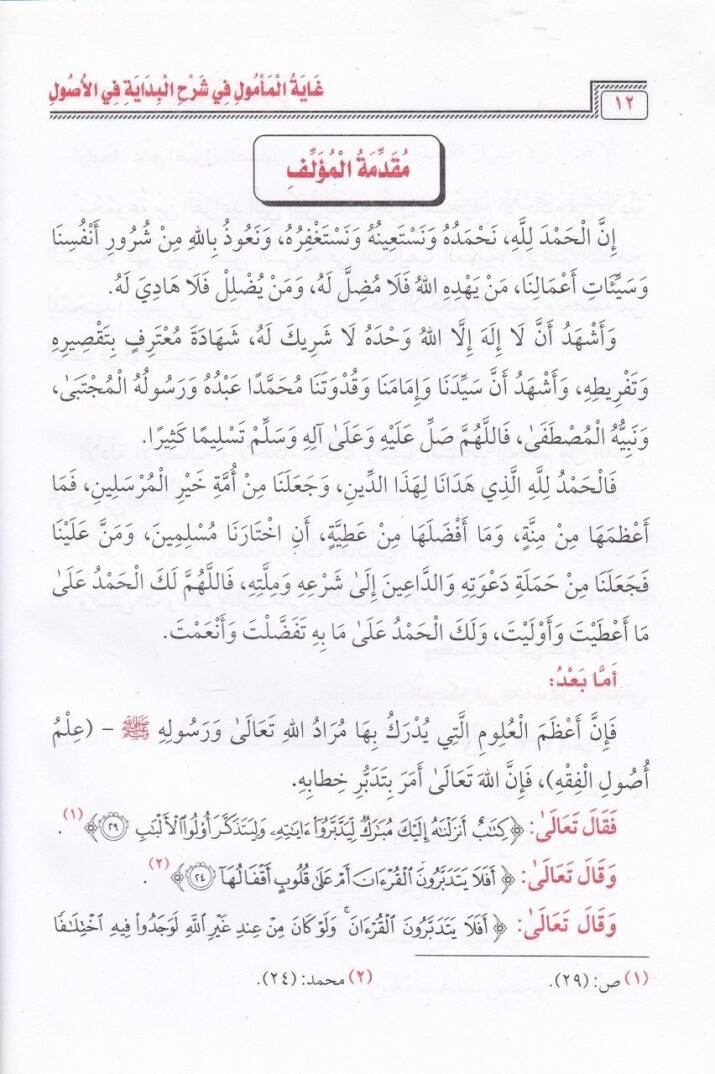 غَايَةُ الْمَأْمُولِ فِي شَرْحِ الْبِدَايَةِ فِي الأُصُولِ
١٢
مُقَدِّمَةُ الْمُؤَلِّفِ
إِنَّ الْحَمْدَ لِلَّهِ، نَحْمَدُهُ وَنَسْتَعِينُهُ وَنَسْتَغْفِرُهُ، وَنَعُوذُ بِاللهِ مِنْ شُرُورِ أَنْفُسِنَا
وَسَيِّئَاتِ أَعْمَالِنَا، مَنْ يَهْدِهِ اللهُ فَلَا مُضِلَّ لَهُ، وَمَنْ يُضْلِلْ فَلَا هَادِيَ لَهُ.
وَأَشْهَدُ أَنَّ لَا إِلَهَ إِلَّا اللهُ وَحْدَهُ لَا شَرِيكَ لَهُ، شَهَادَةَ مُعْتَرِفٍ بِتَقْصِيرِهِ
وَتَفْرِيطِهِ، وَأَشْهَدُ أَنَّ سَيِّدَنَا وَإِمَامَنَا وَقُدْوَتَنَا مُحَمَّدًا عَبْدُهُ وَرَسُولُهُ الْمُجْتَبَىٰ،
وَنَبِيُّهُ الْمُصْطَفَىٰ، فَاللَّهُمَّ صَلِّ عَلَيْهِ وَعَلَىٰ آلِهِ وَسَلِّمْ تَسْلِيمًا كَثِيرًا.
فَالْحَمْدُ لِلَّهِ الَّذِي هَدَانَا لِهَذَا الدِّينِ، وَجَعَلَنَا مِنْ أُمَّةِ خَيْرِ الْمُرْسَلِينَ، فَمَا
أَعْظَمَهَا مِنْ مِنَّةٍ، وَمَا أَفْضَلَهَا مِنْ عَطِيَّةٍ، أَنِ اخْتَارَنَا مُسْلِمِينَ، وَمَنَّ عَلَيْنَا
فَجَعَلَنَا مِنْ حَمَلَةِ دَعْوَتِهِ وَالدَّاعِينَ إِلَىٰ شَرْعِهِ وَمِلَّتِهِ، فَاللَّهُمَّ لَكَ الْحَمْدُ عَلَىٰ
مَا أَعْطَيْتَ وَأَوْلَيْتَ، وَلَكَ الْحَمْدُ عَلَىٰ مَا بِهِ تَفَضَّلْتَ وَأَنْعَمْتَ.
أَمَّا بَعْدُ:
فَإِنَّ أَعْظَمَ الْعُلُومِ الَّتِي يُدْرَكُ بِهَا مُرَادُ اللهِ تَعَالَىٰ وَرَسُولِهِ ﷺ - (عِلْمُ
أُصُولِ الْفِقْهِ)، فَإِنَّ اللهَ تَعَالَىٰ أَمَرَ بِتَدَبُّرِ خِطَابِهِ.
فَقَالَ تَعَالَىٰ: ﴿كِتَٰبٌ أَنزَلْنَٰهُ إِلَيْكَ مُبَٰرَكٌ لِّيَدَّبَّرُوٓا۟ ءَايَٰتِهِۦ وَلِيَتَذَكَّرَ أُو۟لُوا۟ ٱلْأَلْبَٰبِ ٢٩﴾ (١).
وَقَالَ تَعَالَىٰ: ﴿أَفَلَا يَتَدَبَّرُونَ ٱلْقُرْءَانَ أَمْ عَلَىٰ قُلُوبٍ أَقْفَالُهَآ ٢٤﴾ (٢).
وَقَالَ تَعَالَىٰ: ﴿أَفَلَا يَتَدَبَّرُونَ ٱلْقُرْءَانَ ۚ وَلَوْ كَانَ مِنْ عِندِ غَيْرِ ٱللَّهِ لَوَجَدُوا۟ فِيهِ ٱخْتِلَٰفًا
(١) ص: (٢٩). (٢) محمد: (٢٤).